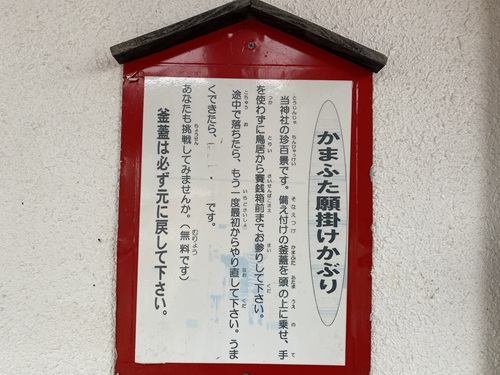 かまふた願掛けかぶり
当神社の珍百景です。備え付けの釜蓋を頭の上に乗せ、手
を使わずに鳥居から賽銭箱前までお参りして下さい。
途中で落ちたら、もう一度最初からやり直して下さい。うま
くできたら、 です。
あなたも挑戦してみませんか。(無料です)
釜蓋は必ず元に戻して下さい。